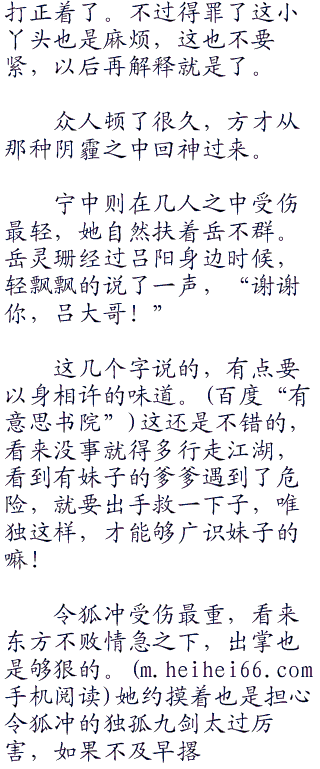 打正着了。不过得罪了这小
丫头也是麻烦，这也不要
紧，以后再解释就是了。
众人顿了很久，方才从
那种阴霾之中回神过来。
宁中则在几人之中受伤
最轻，她自然扶着岳不群。
岳灵珊经过吕阳身边时候，
轻飘飘的说了一声，“谢谢
你，吕大哥！”
这几个字说的，有点要
以身相许的味道。(百度“有
意思书院”)这还是不错的，
看来没事就得多行走江湖，
看到有妹子的爹爹遇到了危
险，就要出手救一下子，唯
独这样，才能够广识妹子的
嘛！
令狐冲受伤最重，看来
东方不败情急之下，出掌也
是够狠的。(m.heihei66.com
手机阅读)她约摸着也是担心
令狐冲的独孤九剑太过厉
害，如果不及早撂